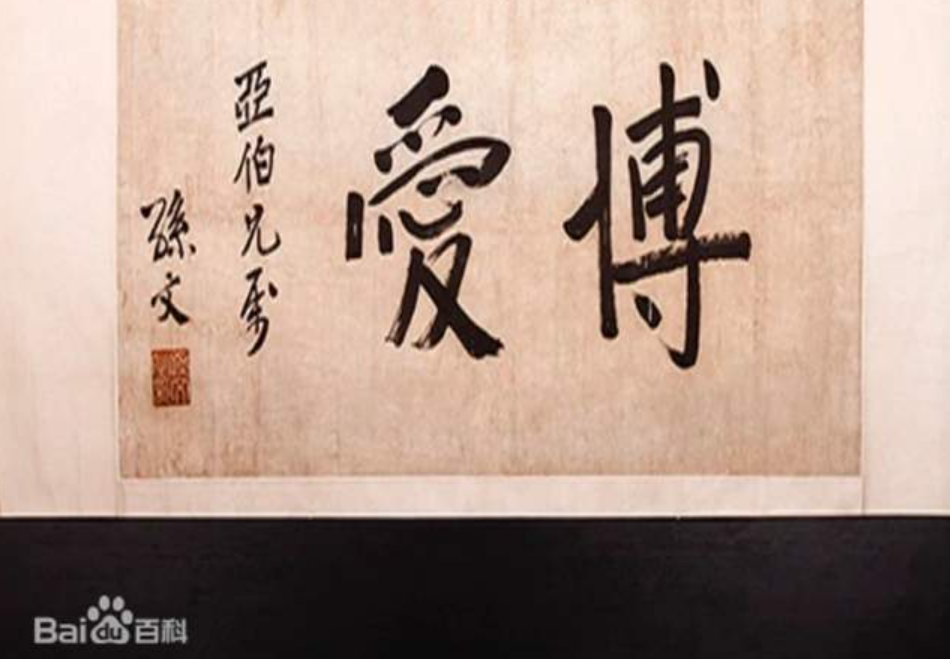 博愛
亞伯兄属
孫文
Baidu百科